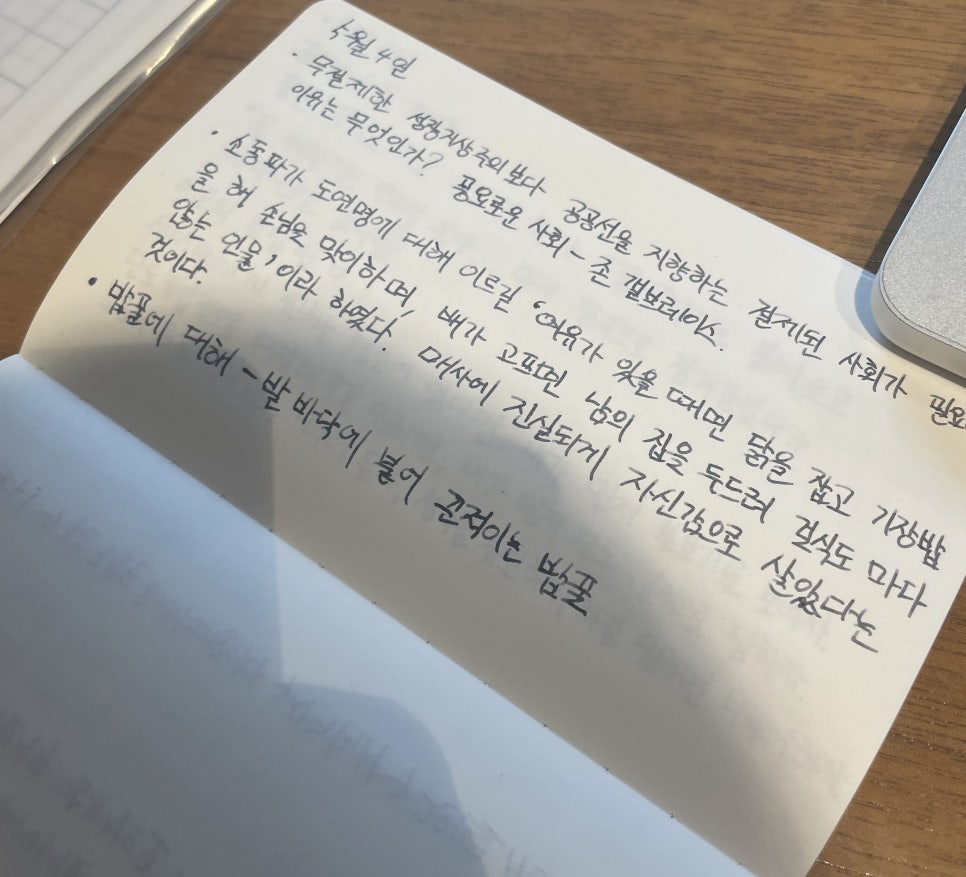 5월 4일
· 무절제한 성장지상주의 보다 공공선을 지향하는 절제된 사회가 필요
이유는 무엇인가? 풍요로운 사회 - 존 갤브레이스.
· 소동파가 도연명에 대해 이르길 '여유가 있을 때면 닭을 잡고 기장밥
을 해 손님을 맞이하며, 배가 고프면 남의 집을 두드려 걸식도 마다
않는 인물'이라 하였다. 매사에 진실되게 자신감으로 살았다는
것이다.
· 밥풀에 대해 - 발바닥에 붙어 끈적이는 밥풀